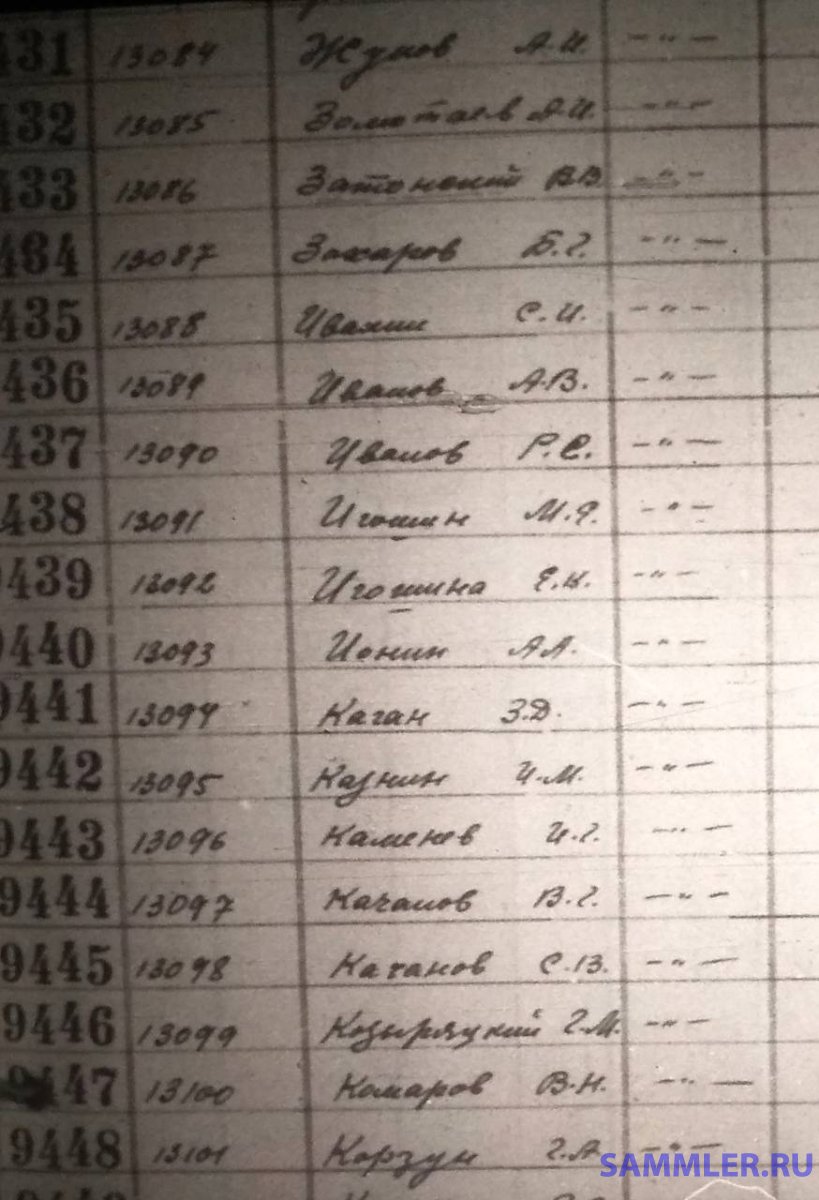 431 13084 Жуков А.И. -"-
432 13085 Золотаев А.И. -"-
433 13086 Затонский В.В. -"-
434 13087 Захаров Б.Г. -"-
435 13088 Ивахин С.И. -"-
436 13089 Иванов А.В. -"-
437 13090 Иванов Р.С. -"-
438 13091 Игошин М.Я. -"-
9439 13092 Игошина Е.К. -"-
9440 13093 Ионин А.А. -"-
9441 13094 Каган З.Д. -"-
9442 13095 Казнин И.М. -"-
9443 13096 Каменев И.Г. -"-
9444 13097 Качанов В.Г. -"-
9445 13098 Качанов С.В. -"-
9446 13099 Козыряцкий Г.М. -"-
9447 13100 Комаров В.Н. -"-
9448 13101 Корзун Г.А. -"-
SAMMLER.RU